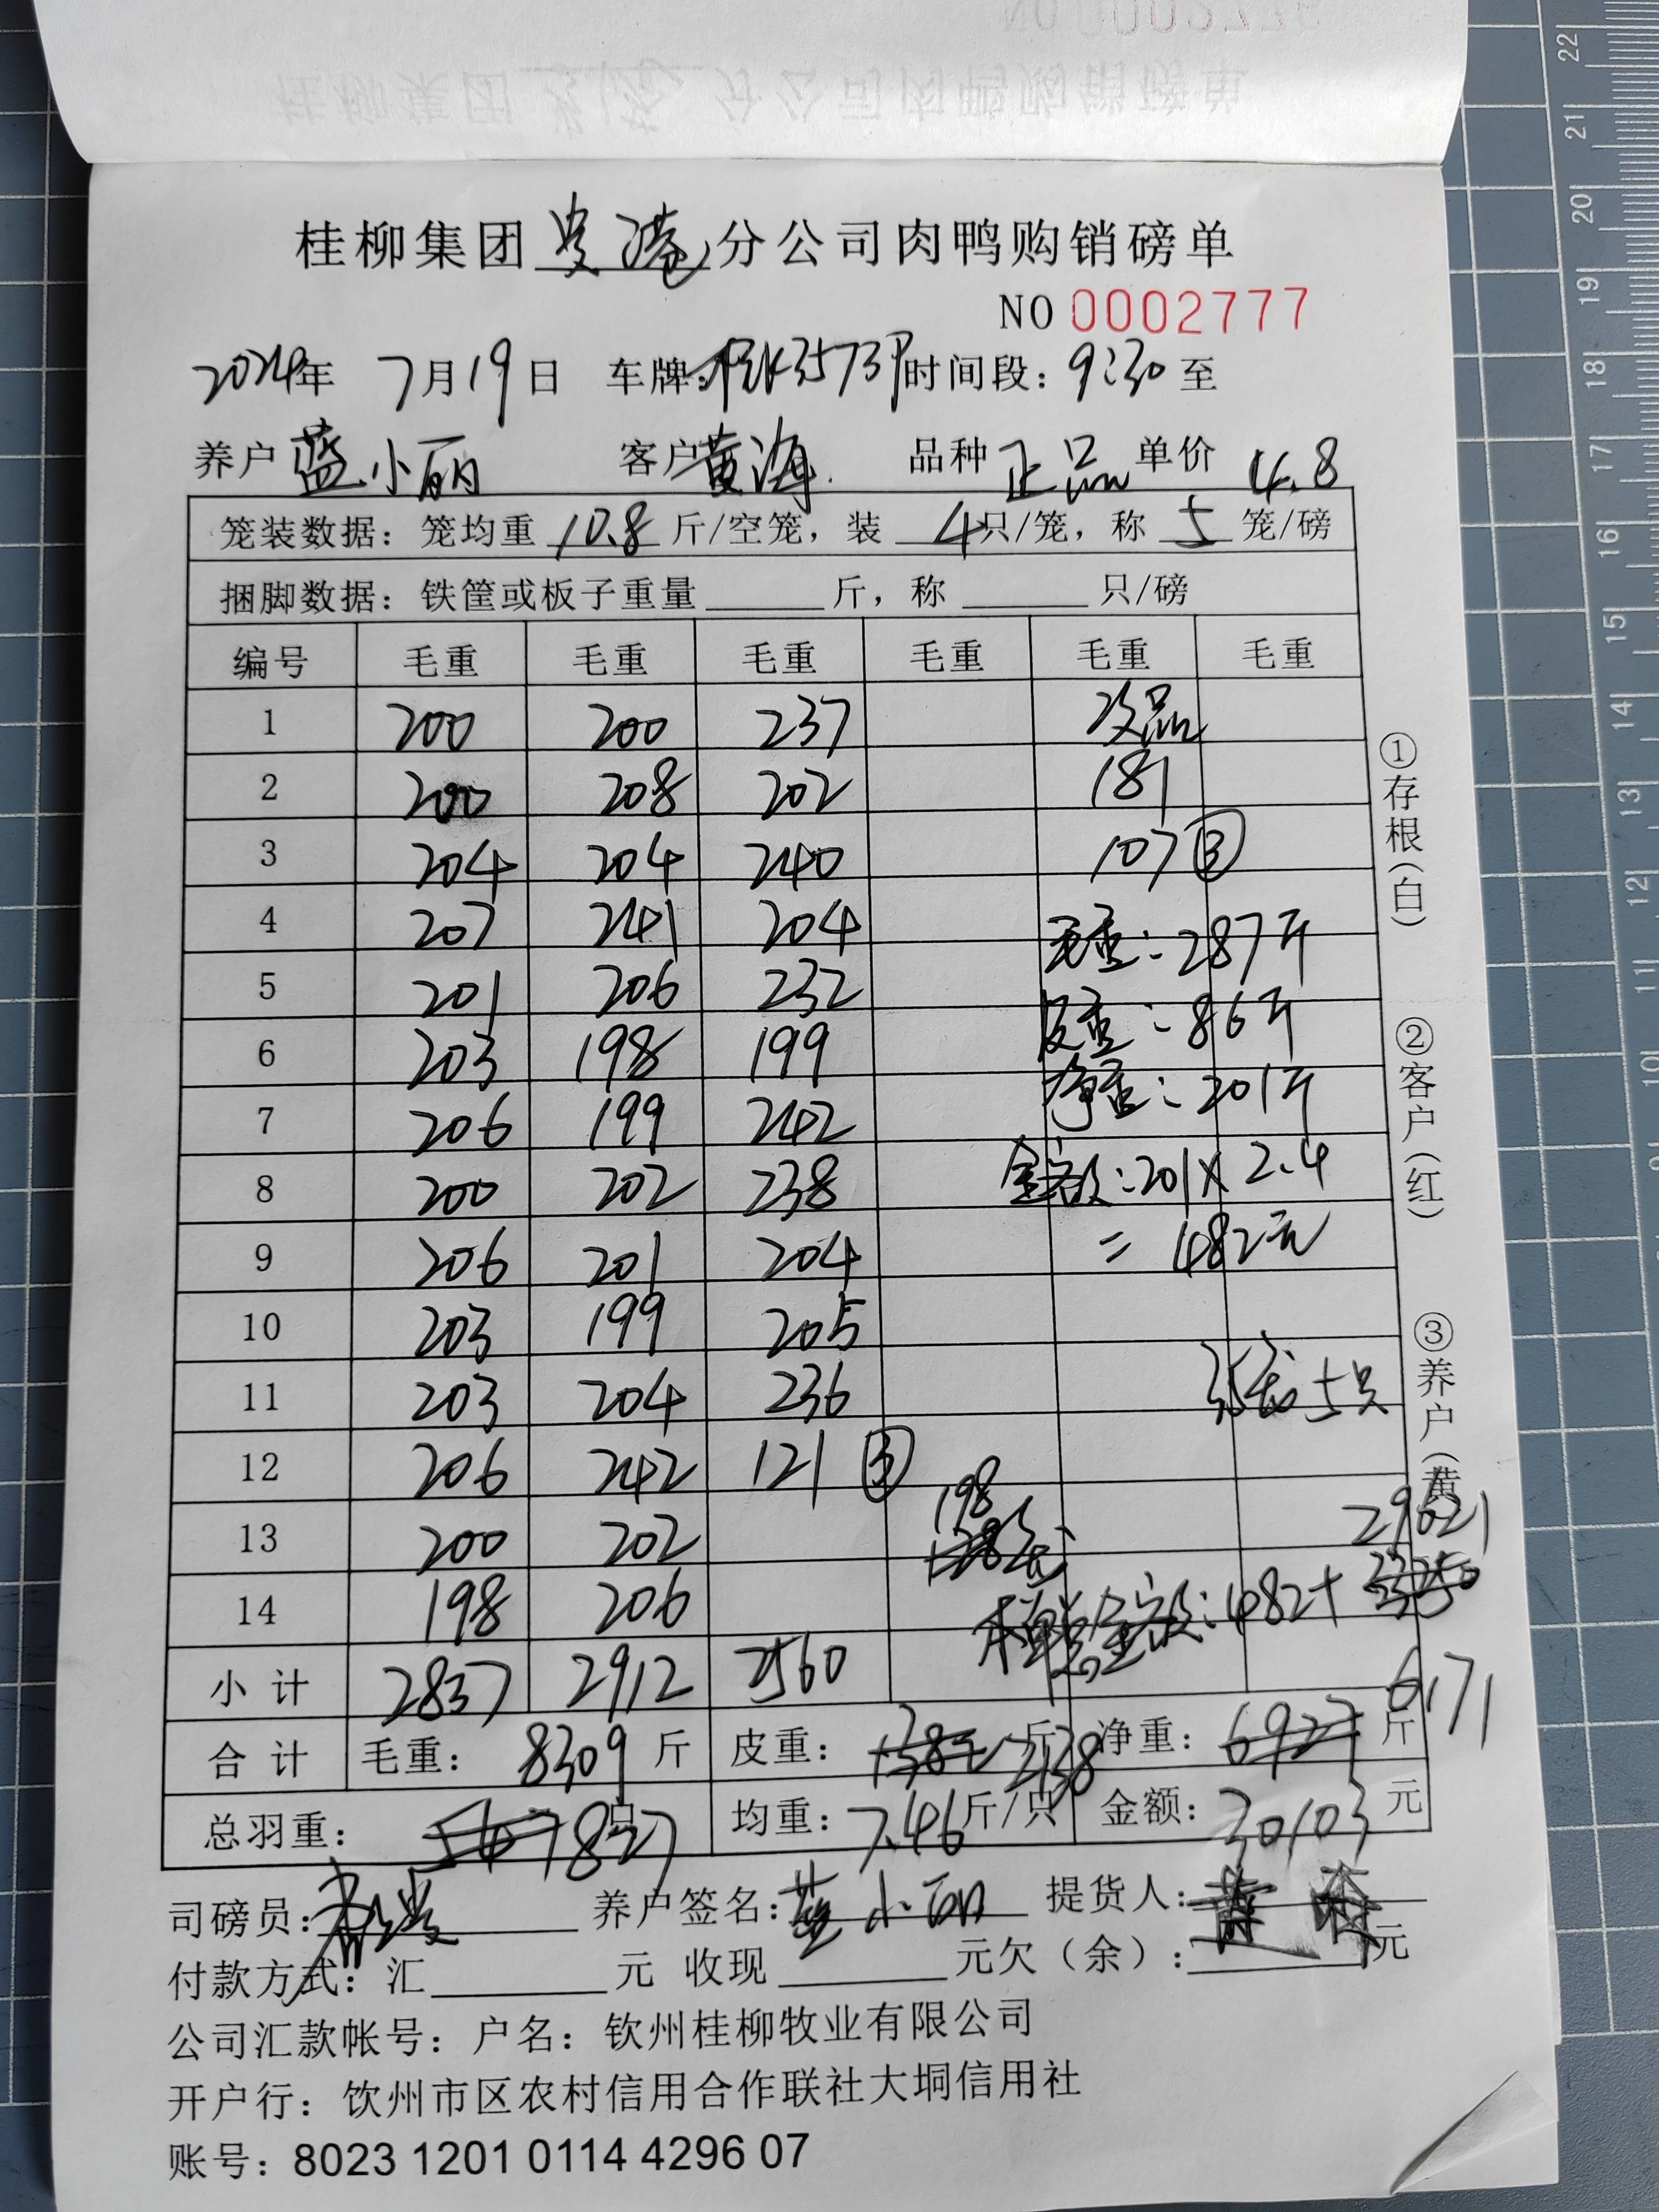 桂柳集团贵港分公司肉鸭购销磅单
NO 0002777
2024年 7月19日 车牌:桂K3573P 时间段:9:30至
养户 蓝小丽 客户 黄海 品种 正品 单价 4.8
笼装数据:笼均重 10.8 斤/空笼,装 4 只/笼,称 5 笼/磅
捆脚数据:铁筐或板子重量 斤,称 只/磅
编号 毛重 毛重 毛重 毛重 毛重 毛重
1 200 200 237 次品
2 200 208 202 181
3 204 204 240 107 ③
4 207 241 204 毛重:287斤
5 201 206 232 皮重:86斤
6 203 198 199 净重:201斤
7 206 199 242
8 200 202 238 金额:201×2.4
9 206 201 204 =482元
10 203 199 205
11 203 204 236 5只
12 206 242 121 ③
13 200 202 198 29621
14 198 206 本单总金额:482+
小计 2837 2912 2560
合计 毛重: 8309 斤 皮重: 斤 2138 净重: 斤 6171
总羽重: 827 只 均重:7.46斤/只 金额:30103元
司磅员: 养户签名:蓝小丽 提货人:
付款方式:汇 元 收现 元欠(余): 元
公司汇款帐号:户名:钦州桂柳牧业有限公司
开户行:饮州市区农村信用合作联社大垌信用社
账号:8023 1201 0114 4296 07
①存根(白)
②客户(红)
③养户(黄